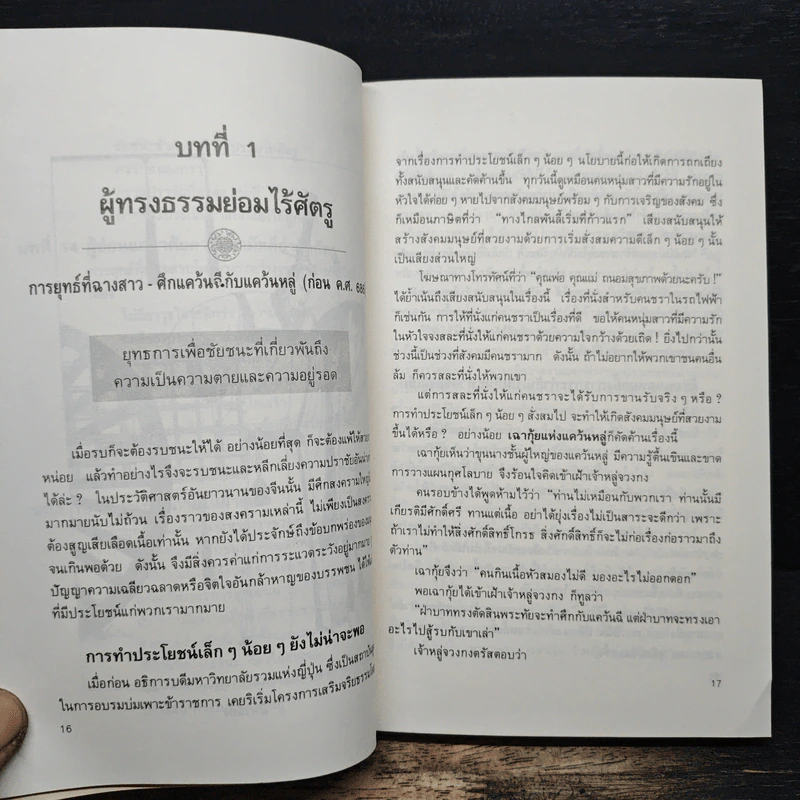 บทที่ 1
ผู้ทรงธรรมย่อมไร้ศัตรู
การยุทธ์ที่ฉางสาว - ศึกแคว้นฉีกับแคว้นหลู่ (ก่อน ค.ศ. 686
ยุทธการเพื่อชัยชนะที่เกี่ยวพันถึง
ความเป็นความตายและความอยู่รอด
เมื่อรบก็จะต้องรบชนะให้ได้ อย่างน้อยที่สุด ก็จะต้องแพ้ให้
หน่อย แล้วทำอย่างไรจึงจะรบชนะและหลีกเลี่ยงความปราชัยอัน
ได้ล่ะ ? ในประวัติศาสตร์อันยาวนานของจีนนั้น มีศึกสงครามใหญ่
มากมายนับไม่ถ้วน เรื่องราวของสงครามเหล่านี้ ไม่เพียงเป็น
ต้องสูญเสียเลือดเนื้อเท่านั้น หากยังได้ประจักษ์ถึงข้อบกพร่องของ
จนเกินพอด้วย ดังนั้น จึงมีสิ่งควรค่าแก่การระแวดระวังอยู่มากมาย
ปัญญาความเฉลียวฉลาดหรือจิตใจอันกล้าหาญของบรรพชน
ที่มีประโยชน์แก่พวกเรามากมาย
การทำประโยชน์เล็ก ๆ น้อย ๆ ยังไม่น่าจะพอ
เมื่อก่อน อธิการบดีมหาวิทยาลัยรวมแห่งญี่ปุ่น ซึ่งเป็น
ในการอบรมบ่มเพาะข้าราชการ เคยริเริ่มโครงการเสริมจริยธรรม
16
จากเรื่องการทำประโยชน์เล็ก ๆ น้อย ๆ นโยบายนี้ก่อให้เกิดการถกเถียง
ทั้งสนับสนุนและคัดค้านขึ้น ทุกวันนี้ดูเหมือนคนหนุ่มสาวที่มีความรักอยู่ใน
หัวใจได้ค่อย ๆ หายไปจากสังคมมนุษย์พร้อม ๆ กับการเจริญของสังคม ซึ่ง
ก็เหมือนภาษิตที่ว่า “ทางไกลพันลี้เริ่มที่ก้าวแรก” เสียงสนับสนุนให้
สร้างสังคมมนุษย์ที่สวยงามด้วยการเริ่มสั่งสมความดีเล็ก ๆ น้อย ๆ นั้น
เป็นเสียงส่วนใหญ่
โฆษณาทางโทรทัศน์ที่ว่า “คุณพ่อ คุณแม่ ถนอมสุขภาพด้วยนะครับ !”
ได้ย้ำเน้นถึงเสียงสนับสนุนในเรื่องนี้ เรื่องที่นั่งสำหรับคนชราในรถไฟฟ้า
ก็เช่นกัน การให้ที่นั่งแก่คนชราเป็นเรื่องที่ดี ขอให้คนหนุ่มสาวที่มีความรัก
ในหัวใจจงสละที่นั่งให้แก่คนชราด้วยความใจกว้างด้วยเถิด ! ยิ่งไปกว่านั้น
ช่วงนี้เป็นช่วงที่สังคมมีคนชรามาก ดังนั้น ถ้าไม่อยากให้พวกเขาชนคนอื่น
ล้ม ก็ควรสละที่นั่งให้พวกเขา
แต่การสละที่นั่งให้แก่คนชราจะได้รับการขานรับจริง ๆ หรือ ?
การทำประโยชน์เล็ก ๆ น้อย ๆ สั่งสมไป จะทำให้เกิดสังคมมนุษย์ที่สวยงาม
ขึ้นได้หรือ ? อย่างน้อย เฉากุ้ยแห่งแคว้นหลู่ก็คัดค้านเรื่องนี้
เฉากุ้ยเห็นว่าขุนนางชั้นผู้ใหญ่ของแคว้นหลู่ มีความรู้ตื้นเขินและขาด
การวางแผนกุศโลบาย จึงร้อนใจคิดเข้าเฝ้าเจ้าหลู่จวงกง
คนรอบข้างได้พูดห้ามไว้ว่า “ท่านไม่เหมือนกับพวกเรา ท่านนั้นมี
เกียรติมีศักดิ์ศรี ทานแต่เนื้อ อย่าได้ยุ่งเรื่องไม่เป็นสาระจะดีกว่า เพราะ
ถ้าเราไม่ทำให้สิ่งศักดิ์สิทธิ์โกรธ สิ่งศักดิ์สิทธิ์ก็จะไม่ก่อเรื่องก่อราวมาถึง
ตัวท่าน”
เฉากุ้ยจึงว่า “คนกินเนื้อหัวสมองไม่ดี มองอะไรไม่ออกดอก”
พอเฉากุ้ยได้เข้าเฝ้าเจ้าหลู่จวงกง ก็ทูลว่า
“ฝ่าบาททรงตัดสินพระทัยจะทำศึกกับแคว้นฉี แต่ฝ่าบาทจะทรงเอา
อะไรไปสู้รบกับเขาเล่า”
เจ้าหลู่จวงกงตรัสตอบว่า
17